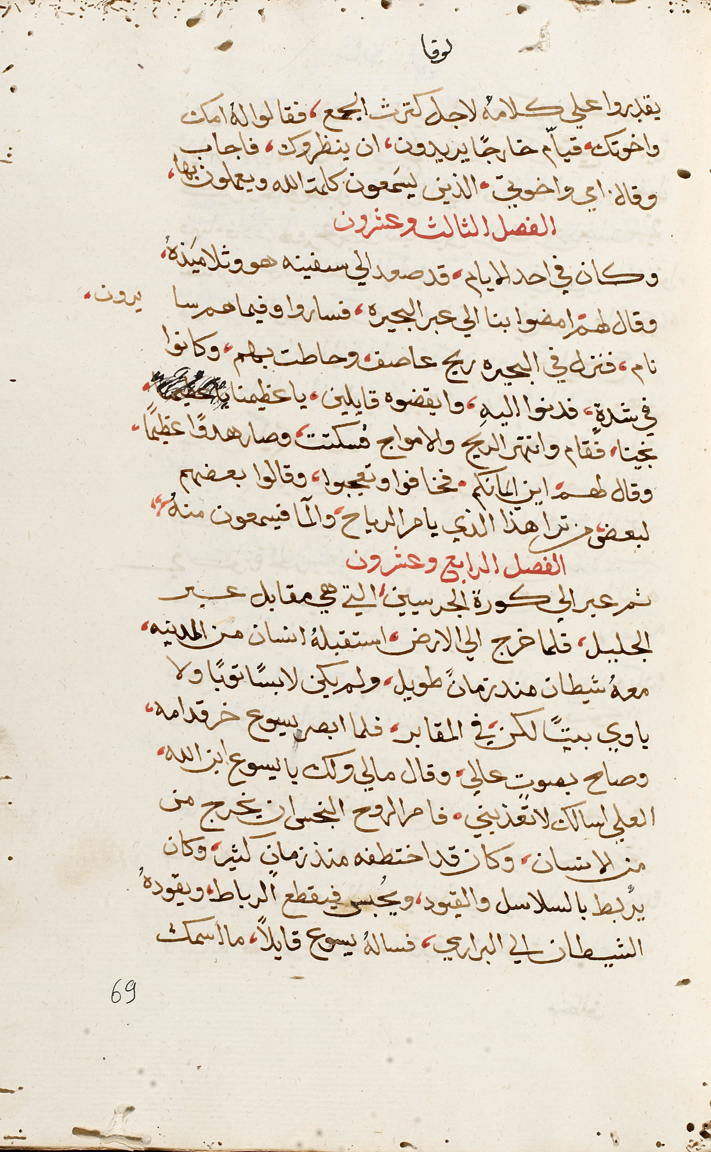 لوقا
يقدروا علي كلامهُ لاجل كترث الجمع، فقالوا لهُ امك
واخوتك، قيام خارجًا يريدون، ان ينظروك، فاجاب
وقال. امي واخوتي، الذين ليسَمعون كلمة الله ويعملون بها،
الفصل الثالث وعشرون
وكان في احد الايام، قد صعد الي سفينه هو وتلاميَذهُ،
وقال لهمَ امضوا بنا الي عبر البحيره، فساروا وفيما هم سا يرون،
نام، فنزل في البحيره ريح عاصف، وحاطت بهم، وكانوا
في شدةٍ، فدنوا اليهِ، وايقضوه قايلين، يا عظيمنا
نجينا، فقام وانتهر الريح والامواج فُسكتت، وصار هدوًا عظيمًا،
وقال لهم، اين ايمانكم، فخافوا وتعجبوا، وقالوا بعضهم
لبعض من ترا هذا الذي يامر الرياح، والما فيسمعون منهُ،
الفصل الرابع وعشرون
ثم عبر الي كورة الجرسيين، التي هي مقابل عبر
الجليل، فلما خرج الي الارض، استقبلهُ انسان من المدينه،
معهُ شيطان مند زمانً طويل، ولم يكن لابسًا توبًا ولا
ياوي بيتًا لكن في المقابر، فلما ابصر يسوع خر قدامه،
وصاح بصوت عالي، وقال مالي ولك يا يسوع ابن الله،
العلي اسالك لا تعذبني، فامر الروح النجس ان يخرج من
من الانسان، وكان قد اختطفه منذ زمان كثير، وكان
يرُبط بالسلاسل والقيود، ويحُبس فيقطع الرباط، ويقودهُ
الشيطان الي البراري، فسالهُ يسوع قايلاً، ما اسمك
69